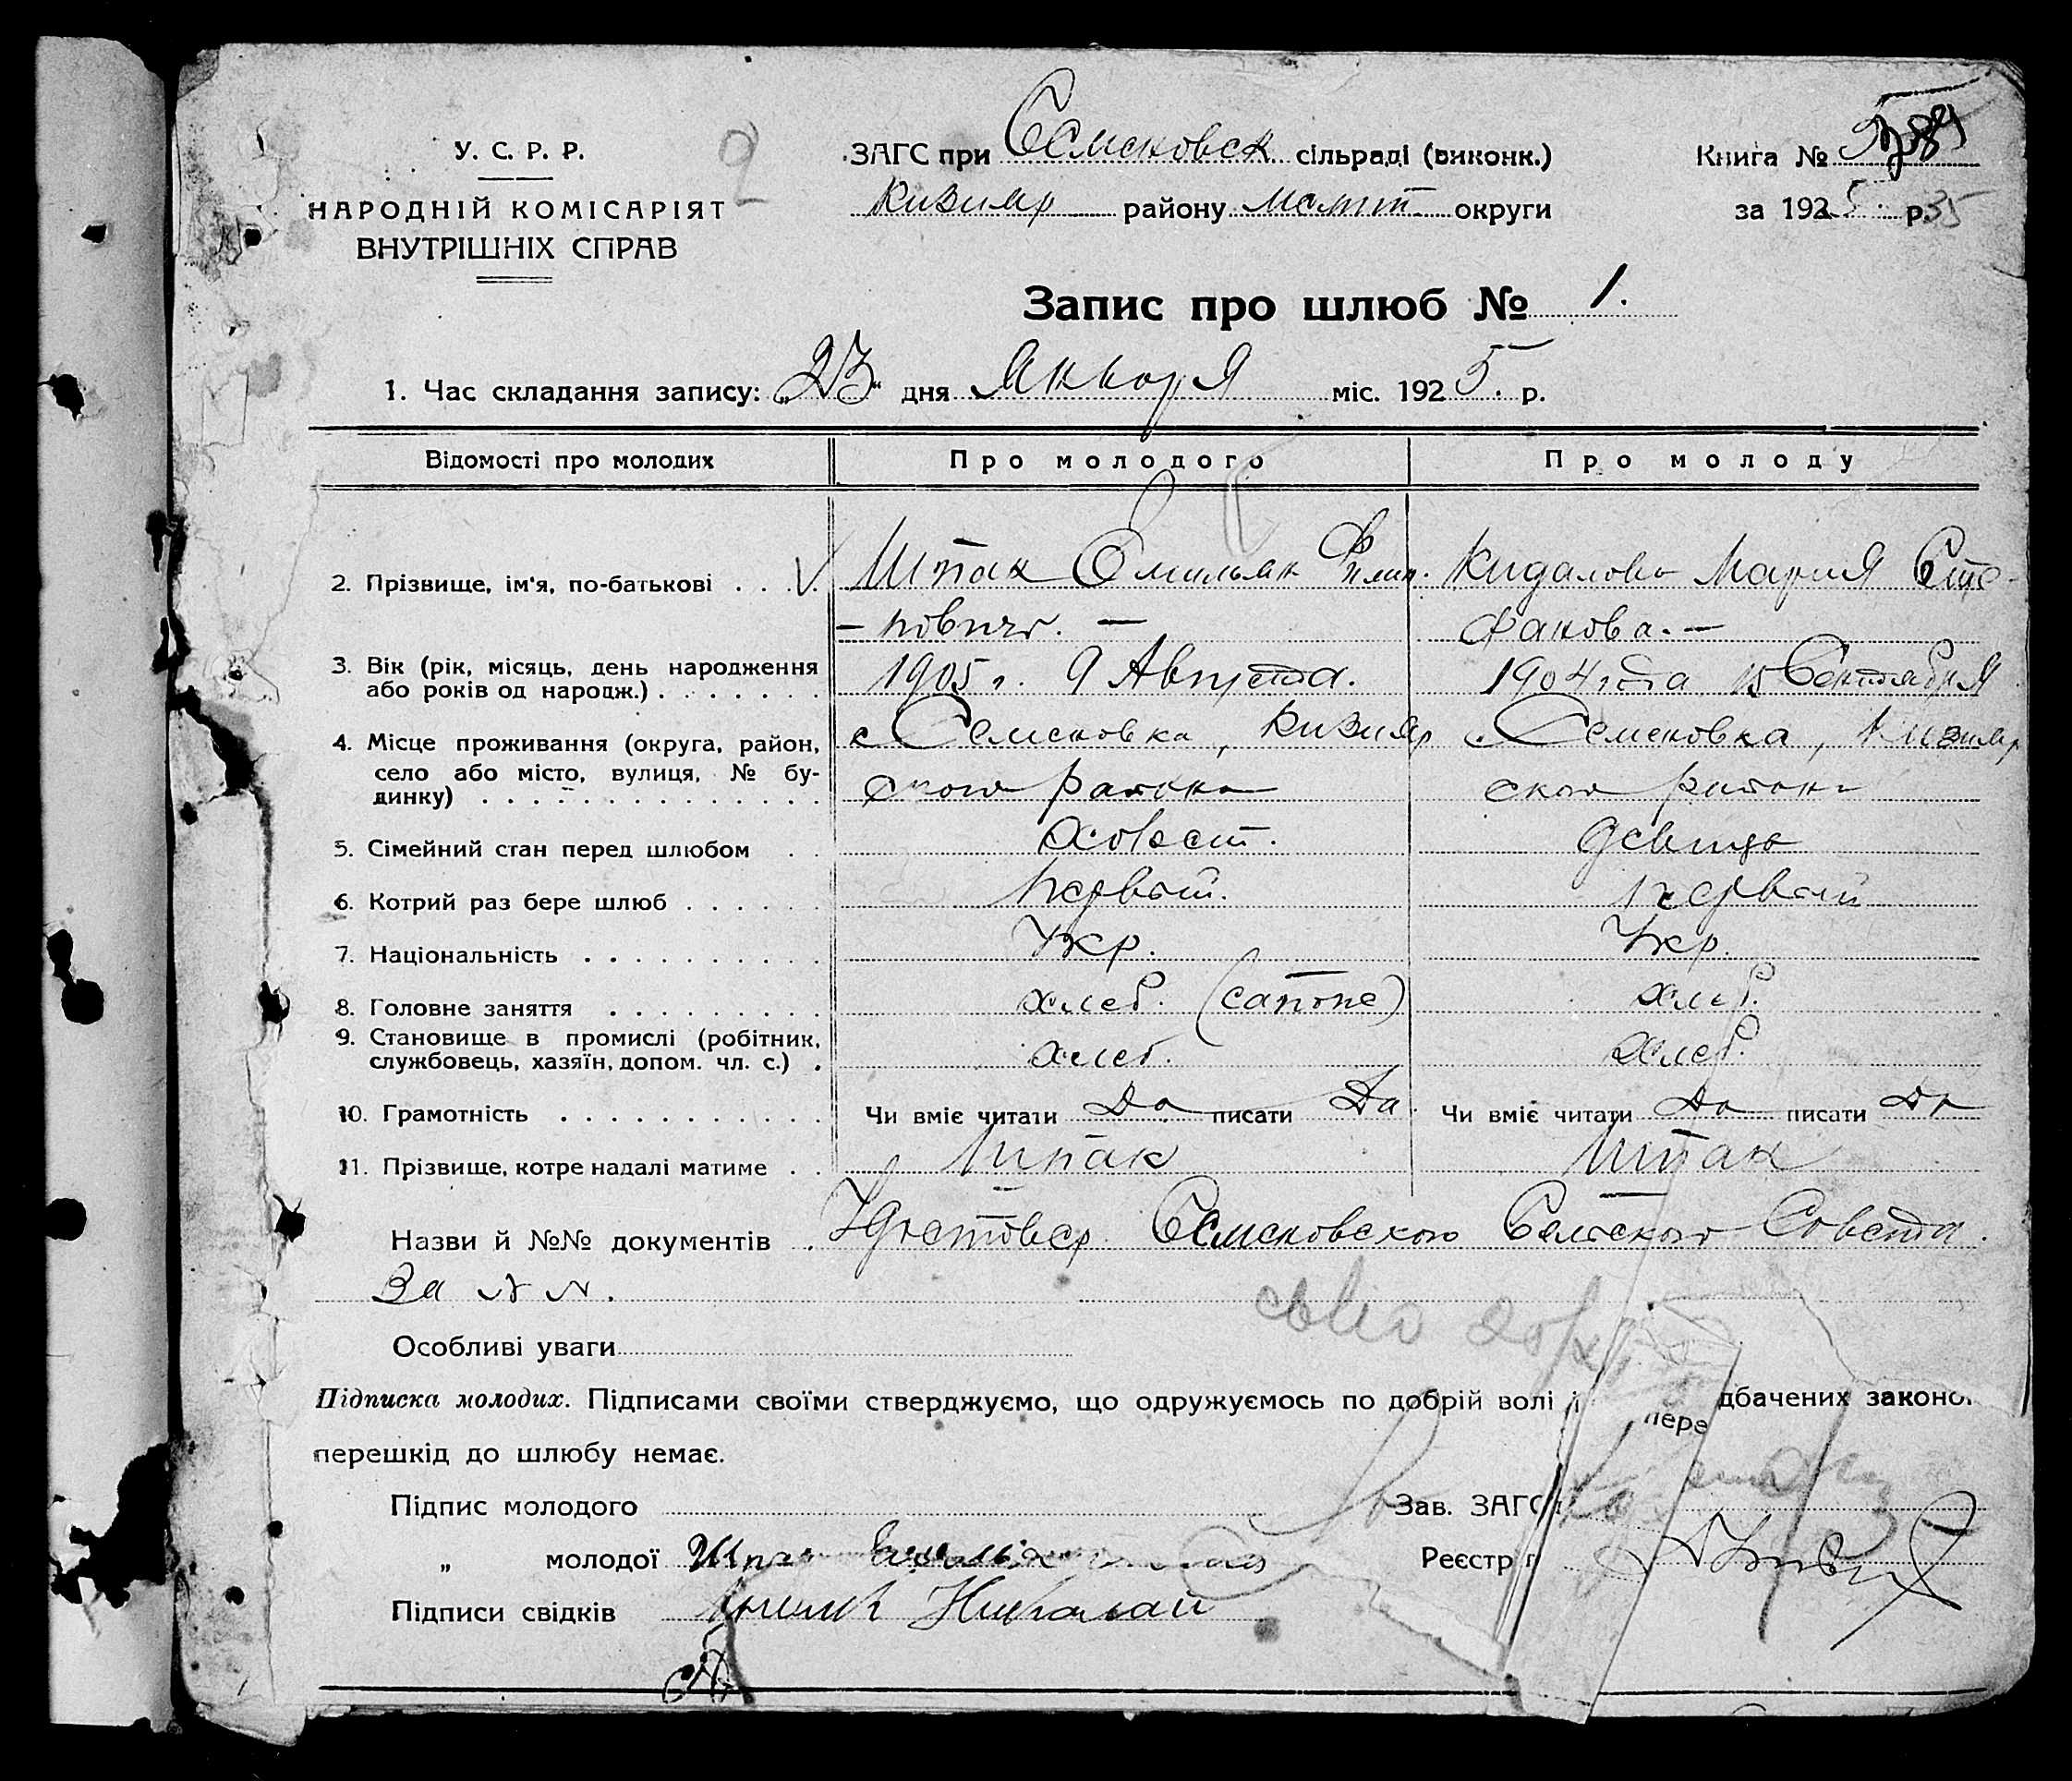 У. С. Р. Р.
НАРОДНІЙ КОМІСАРІЯТ
ВНУТРІШНІХ СПРАВ
2
ЗАГС при Семеновск сільраді (виконк.)
Кизияр району Мелит. округи
Книга №
за 1925 р. 35
Запис про шлюб № 1.
1. Час складання запису: „23“ дня Января міс. 1925. р.
Відомості про молодих
Про молодого
Про молоду
2. Прізвище, ім'я, по-батькові
V Шпак Емильян Филип-
пович. —
Кидалова Мария Сте-
фанова. —
3. Вік (рік, місяць, день народження
або років од народж.)
1905 г. 9 Августа.
1904 года 15 Сентября
4. Місце проживання (округа, район,
село або місто, вулиця, № бу-
динку)
с Семеновка, Кизияр
ского Района
с. Семеновка, Кизияр
ского района
5. Сімейний стан перед шлюбом
Холост.
девица
6. Котрий раз бере шлюб
Первый.
Первый
7. Національність
Укр.
Укр.
8. Головне заняття
хлеб. (
хлеб.
9. Становище в промислі (робітник,
службовець, хазяїн, допом. чл. с.)
хлеб.
хлеб.
10. Грамотність
Чи вміє читати Да писати Да.
Чи вміє читати Да писати Да
11. Прізвище, котре надалі матиме
Шпак
Шпак
Назви й №№ документів Удостовер. Семеновского Сельского Совета.
За № №.
Особливі уваги
Підписка молодих. Підписами своїми стверджуємо, що одружуємось по добрій волі і пере дбачених законо
перешкід до шлюбу немає.
Підпис молодого
Зав. ЗАГС
„ молодої Шпак
Реєстр
Підписи свідків Николай